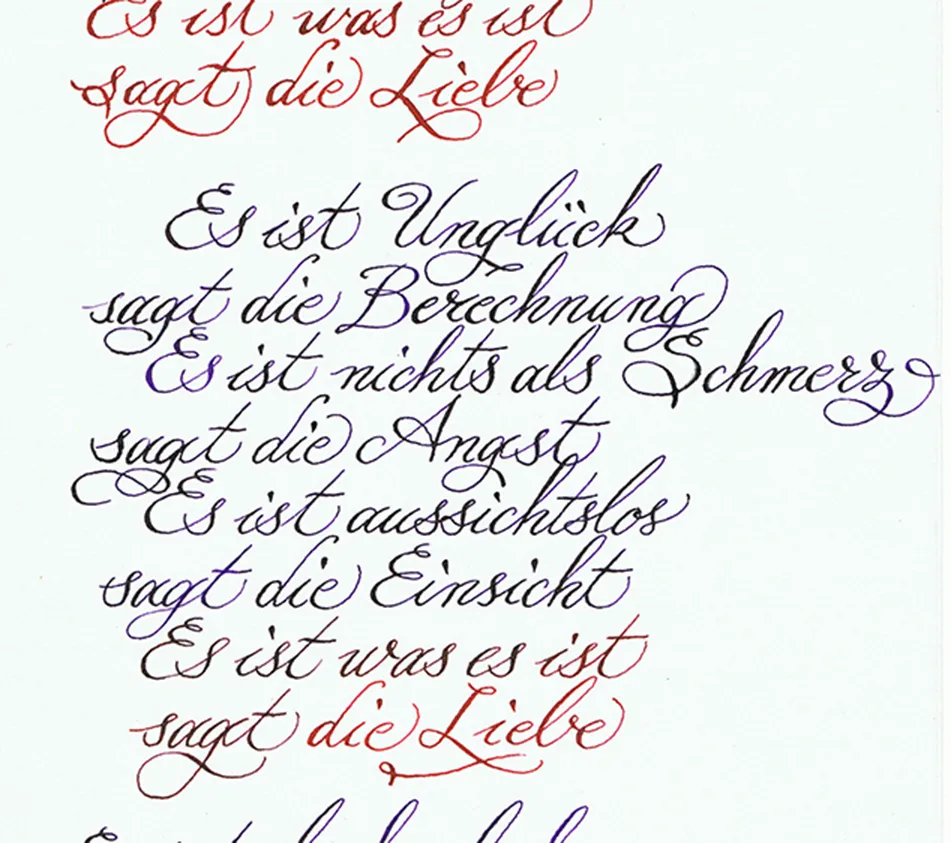 Es ist was es ist
sagt die Liebe
Es ist Unglück
sagt die Berechnung
Es ist nichts als Schmerz
sagt die Angst
Es ist aussichtslos
sagt die Einsicht
Es ist was es ist
sagt die Liebe